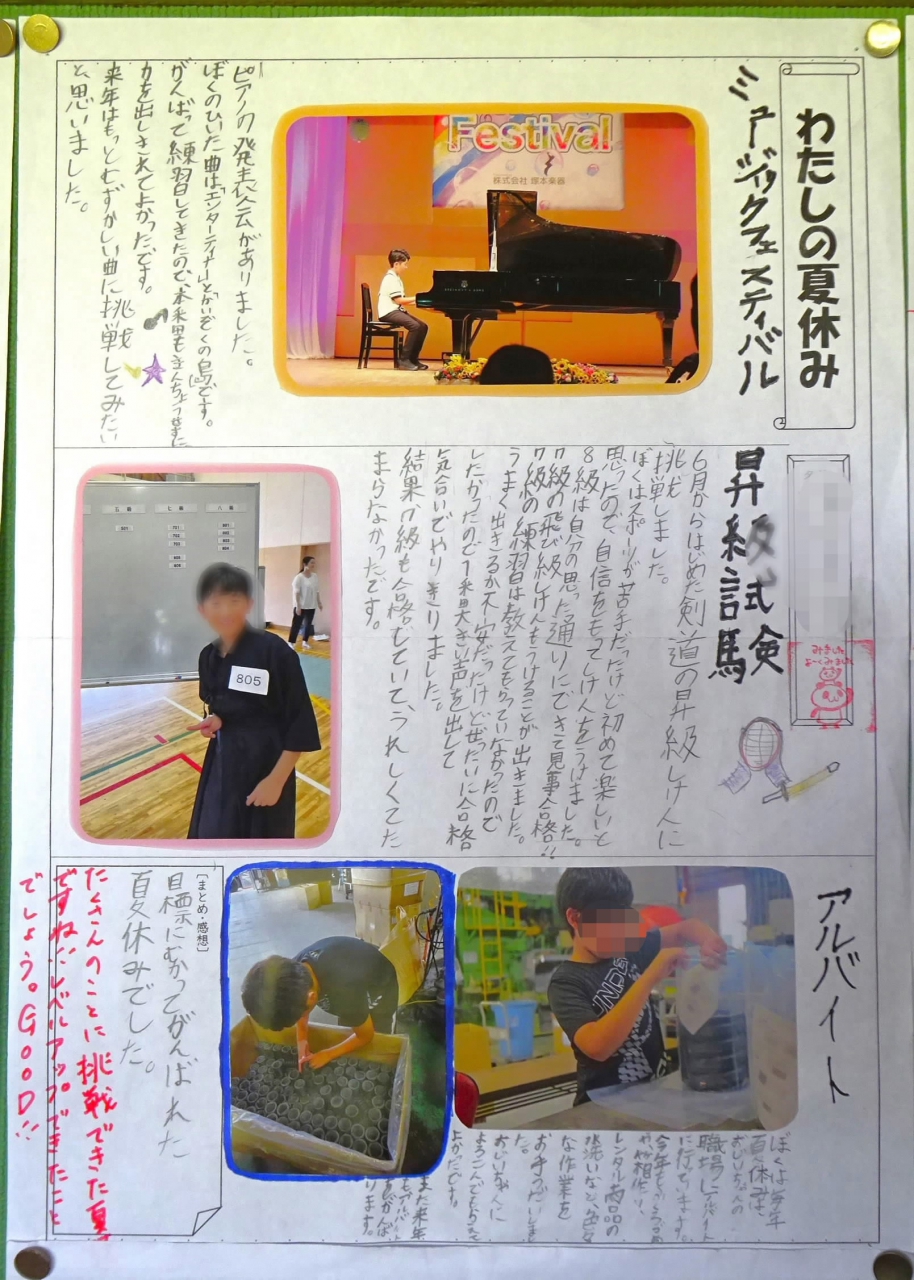 わたしの夏休み
ミュージックフェスティバル
Festival
株式会社 塚本楽器
ピアノの発表会がありました。
ぼくのひいた曲はエンターティナーとかいぞくの島です。
がんばって練習してきたので、本来
力を出しきれてよかったです。
来年はもっとむずかしい曲に挑戦してみたい
と思いました。
昇級試験
6月からはじめた剣道の昇級しけんに
挑戦しました。
ぼくはスポーツが苦手だったけど初めて楽しいと
思ったので、自信をもってしけんをうけました。
8級は自分の思った通りにできて見事合格!!
7級の飛び級しけんもうけることが出きました。
7級の練習は教えてもらっていなかったので
うまく出きるか不安だったけどぜったいに合格
したかったので1番大きい声を出して
気合いでやりきりました。
結果、7級も合格していて、うれしくてた
まらなかったです。
みました
よーくみました
五級
七級
八級
805
アルバイト
ぼくは毎年
夏休みは、
おじいちゃんの
職場にアルバイト
に行っています。
レンタル商品の
水洗いなど、色々
な作業を
お手つだいしまし
た。
おじいちゃんに
よろこんでもらえて
よかったです。
また来年
[まとめ・感想]
目標にむかってがんばれた
夏休みでした。
たくさんのことに挑戦できた夏
ですね!!レベルアップできたこと
でしょう。GOOD!!